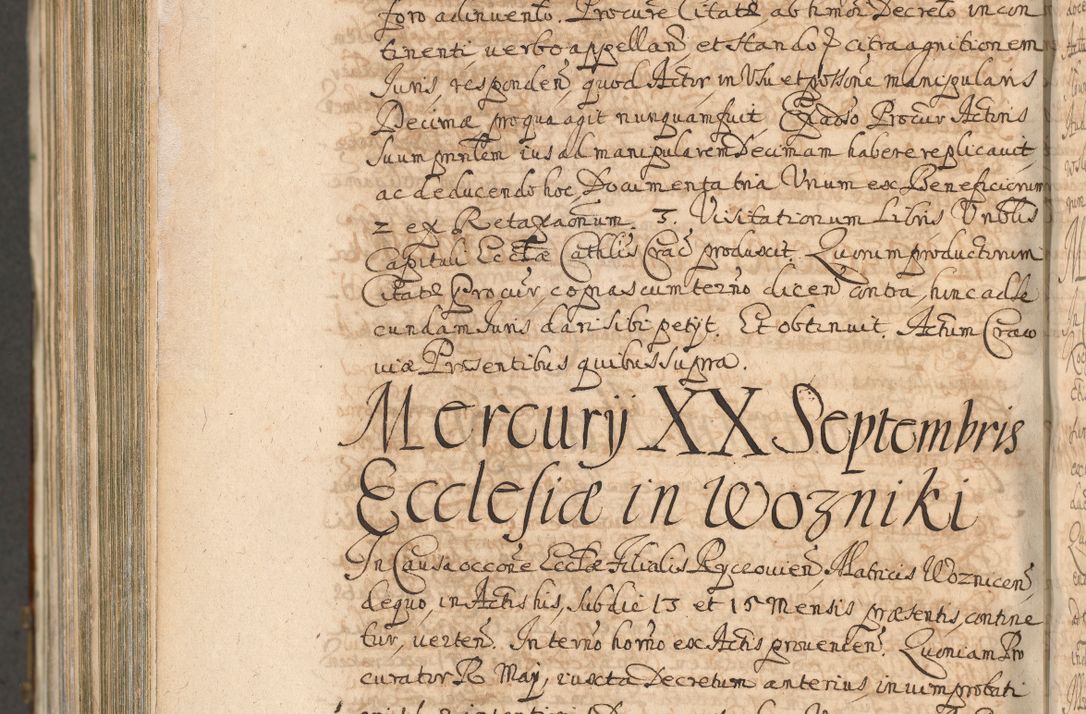 foro adinvento. Procure Citate ab hmoi Decreto incon
tinenti verbo appellan et stando citra agnitionem
Juris, responden, quod Actor in Usu et possone manipularis
Decimæ pro qua agit nunquam fuit. Ex adso Procur Actoris
suum prntem ius ad manipularem Decimam habere replicavit,
ac deducendo hoc, Documenta tria Unum ex Beneficiorum
2 ex Retaxaonum. 3. Visitationum Libris Vnblis
Capituli Ecclæ Cathlis Crac produxit. Quorum productorum
Citate Procur, copias cum termo dicen contra, hinc ad se
cundam Juris dari sibi petijt. Et obtinuit. Actum Craco
viæ Præsentibus quibus supra.
Mercurij XX Septembris
Ecclesiæ in Wozniki
In Causa occone Ecclæ Filialis Ryczovien, Matricis Woznicen
de quo, in Actis his, sub die 13 et 15 Mensis præsentis, contine
tur, verten. In termo horno ex Actis provenien. Quoniam Pro
curator R Maij, iuxta Decretum anterius in vim probati